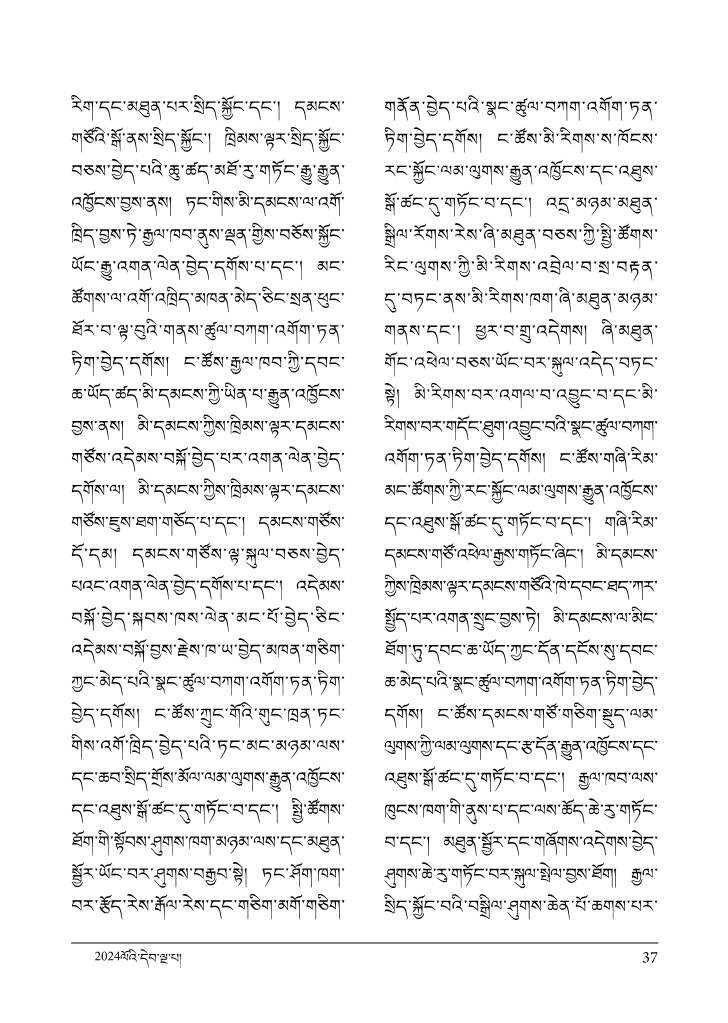 རིག་དང་མཐུན་པར་སྲིད་སྐྱོང་དང་། དམངས་
གཙོའི་སྒོ་ནས་སྲིད་སྐྱོང་། ཁྲིམས་ལྟར་སྲིད་སྐྱོང་
བཅས་བྱེད་པའི་ཆུ་ཚད་མཐོ་རུ་གཏོང་རྒྱུ་རྒྱུན་
འཁྱོངས་བྱས་ནས། ཏང་གིས་མི་དམངས་ལ་འགོ་
ཁྲིད་བྱས་ཏེ་རྒྱལ་ཁབ་ནུས་ལྡན་གྱིས་བཅོས་སྐྱོང་
ཡོང་རྒྱུ་འགན་ལེན་བྱེད་དགོས་པ་དང་། མང་
ཚོགས་ལ་འགོ་འཁྲིད་མཁན་མེད་ཅིང་སྲན་ཕུང་
ཐོར་བ་ལྟ་བུའི་གནས་ཚུལ་བཀག་འགོག་ཏན་
ཏིག་བྱེད་དགོས། ང་ཚོས་རྒྱལ་ཁབ་ཀྱི་དབང་
ཆ་ཡོད་ཚད་མི་དམངས་ཀྱི་ཡིན་པ་རྒྱུན་འཁྱོངས་
བྱས་ནས། མི་དམངས་ཀྱིས་ཁྲིམས་ལྟར་དམངས་
གཙོས་འདེམས་བསྐོ་བྱེད་པར་འགན་ལེན་བྱེད་
དགོས་ལ། མི་དམངས་ཀྱིས་ཁྲིམས་ལྟར་དམངས་
གཙོས་ཇུས་ཐག་གཅོད་པ་དང་། དམངས་གཙོས་
དོ་དམ། དམངས་གཙོས་ལྟ་སྐུལ་བཅས་བྱེད་
པའང་འགན་ལེན་བྱེད་དགོས་པ་དང་། འདེམས་
བསྐོ་བྱེད་སྐབས་ཁས་ལེན་མང་པོ་བྱེད་ཅིང་
འདེམས་བསྐོ་བྱས་རྗེས་ཁ་ཡ་བྱེད་མཁན་གཅིག་
ཀྱང་མེད་པའི་སྣང་ཚུལ་བཀག་འགོག་ཏན་ཏིག་
བྱེད་དགོས། ང་ཚོས་ཀྲུང་གོའི་གུང་ཁྲན་ཏང་
གིས་འགོ་ཁྲིད་བྱེད་པའི་ཏང་མང་མཉམ་ལས་
དང་ཆབ་སྲིད་གྲོས་མོལ་ལམ་ལུགས་རྒྱུན་འཁྱོངས་
དང་འཐུས་སྒོ་ཚང་དུ་གཏོང་བ་དང་། སྤྱི་ཚོགས་
ཐོག་གི་སྟོབས་ཤུགས་ཁག་མཉམ་ལས་དང་མཐུན་
སྦྱོར་ཡོང་བར་ཤུགས་བརྒྱབ་སྟེ། ཏང་ཤོག་ཁག་
བར་རྩོད་རེས་རྒོལ་རེས་དང་གཅིག་མགོ་གཅིག་
གནོན་བྱེད་པའི་སྣང་ཚུལ་བཀག་འགོག་ཏན་
ཏིག་བྱེད་དགོས། ང་ཚོས་མི་རིགས་ས་ཁོངས་
རང་སྐྱོང་ལམ་ལུགས་རྒྱུན་འཁྱོངས་དང་འཐུས་
སྒོ་ཚང་དུ་གཏོང་བ་དང་། འདྲ་མཉམ་མཐུན་
སྒྲིལ་རོགས་རེས་ཞི་མཐུན་བཅས་ཀྱི་སྤྱི་ཚོགས་
རིང་ལུགས་ཀྱི་མི་རིགས་འབྲེལ་བ་སྲ་བརྟན་
དུ་བཏང་ནས་མི་རིགས་ཁག་ཞི་མཐུན་མཉམ་
གནས་དང་། ཕྱར་བ་གྲུ་འདེགས། ཞི་མཐུན་
གོང་འཕེལ་བཅས་ཡོང་བར་སྐུལ་འདེད་བཏང་
སྟེ། མི་རིགས་བར་འགལ་བ་འབྱུང་བ་དང་མི་
རིགས་བར་གདོང་ཐུག་འབྱུང་བའི་སྣང་ཚུལ་བཀག་
འགོག་ཏན་ཏིག་བྱེད་དགོས། ང་ཚོས་གཞི་རིམ་
མང་ཚོགས་ཀྱི་རང་སྐྱོང་ལམ་ལུགས་རྒྱུན་འཁྱོངས་
དང་འཐུས་སྒོ་ཚང་དུ་གཏོང་བ་དང་། གཞི་རིམ་
དམངས་གཙོ་འཕེལ་རྒྱས་གཏོང་ཞིང་། མི་དམངས་
ཀྱིས་ཁྲིམས་ལྟར་དམངས་གཙོའི་ཁེ་དབང་ཐད་ཀར་
སྤྱོད་པར་འགན་སྲུང་བྱས་ཏེ། མི་དམངས་ལ་མིང་
ཐོག་ཏུ་དབང་ཆ་ཡོད་ཀྱང་དོན་དངོས་སུ་དབང་
ཆ་མེད་པའི་སྣང་ཚུལ་བཀག་འགོག་ཏན་ཏིག་བྱེད་
དགོས། ང་ཚོས་དམངས་གཙོ་གཅིག་སྡུད་ལམ་
ལུགས་ཀྱི་ལམ་ལུགས་དང་རྩ་དོན་རྒྱུན་འཁྱོངས་དང་
འཐུས་སྒོ་ཚང་དུ་གཏོང་བ་དང་། རྒྱལ་ཁབ་ལས་
ཁུངས་ཁག་གི་ནུས་པ་དང་ལས་ཆོད་ཆེ་རུ་གཏོང་
བ་དང་། མཐུན་སྦྱོར་དང་གཞོགས་འདེགས་བྱེད་
ཤུགས་ཆེ་རུ་གཏོང་བར་སྐུལ་སྤེལ་བྱས་ཐོག། རྒྱལ་
སྲིད་སྐྱོང་བའི་བསྒྲིལ་ཤུགས་ཆེན་པོ་ཆགས་པར་
2024ལོའི་དེབ་ལྔ་པ།
37